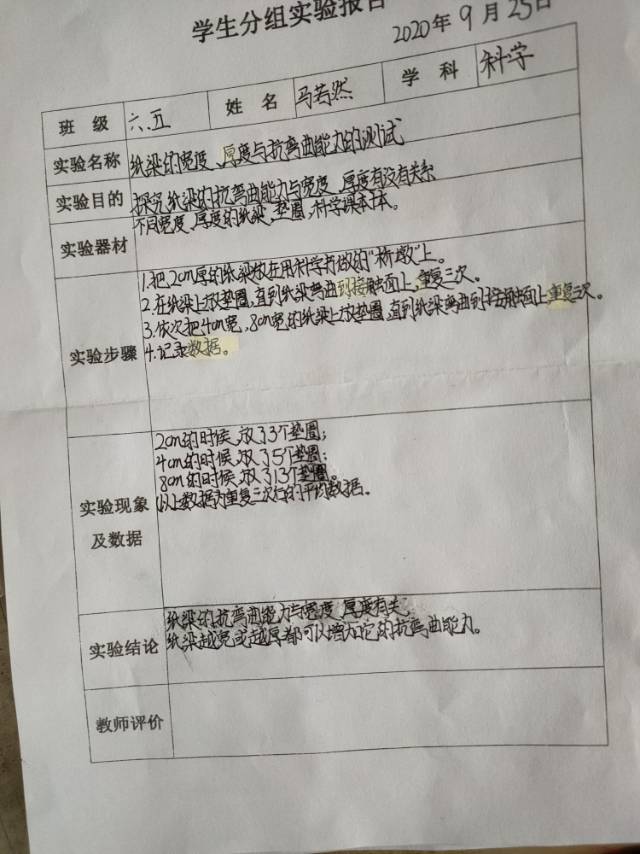 学生分组实验报告
2020年9月25日
班级 六.五 姓名 马若然 学科 科学
实验名称 纸梁的宽度、厚度与抗弯曲能力的测试
实验目的 探究纸梁的抗弯曲能力与宽度、厚度有没有关系
实验器材 不同宽度、厚度的纸梁、垫圈、科学课本本。
实验步骤
1.把2cm厚的纸梁放在用科学书做的“桥墩”上。
2.在纸梁上放垫圈,直到纸梁弯曲到接触面上,重复三次。
3.依次把4cm宽,8cm宽的纸梁上放垫圈,直到纸梁弯曲到接触面上重复三次。
4.记录数据。
实验现象及数据
2cm的时候,放了3个垫圈;
4cm的时候,放了5个垫圈;
8cm的时候,放了13个垫圈。
以上数据为重复三次后的平均数据。
实验结论
纸梁的抗弯曲能力与宽度、厚度有关
纸梁越宽或越厚都可以增加它的抗弯曲能力。
教师评价